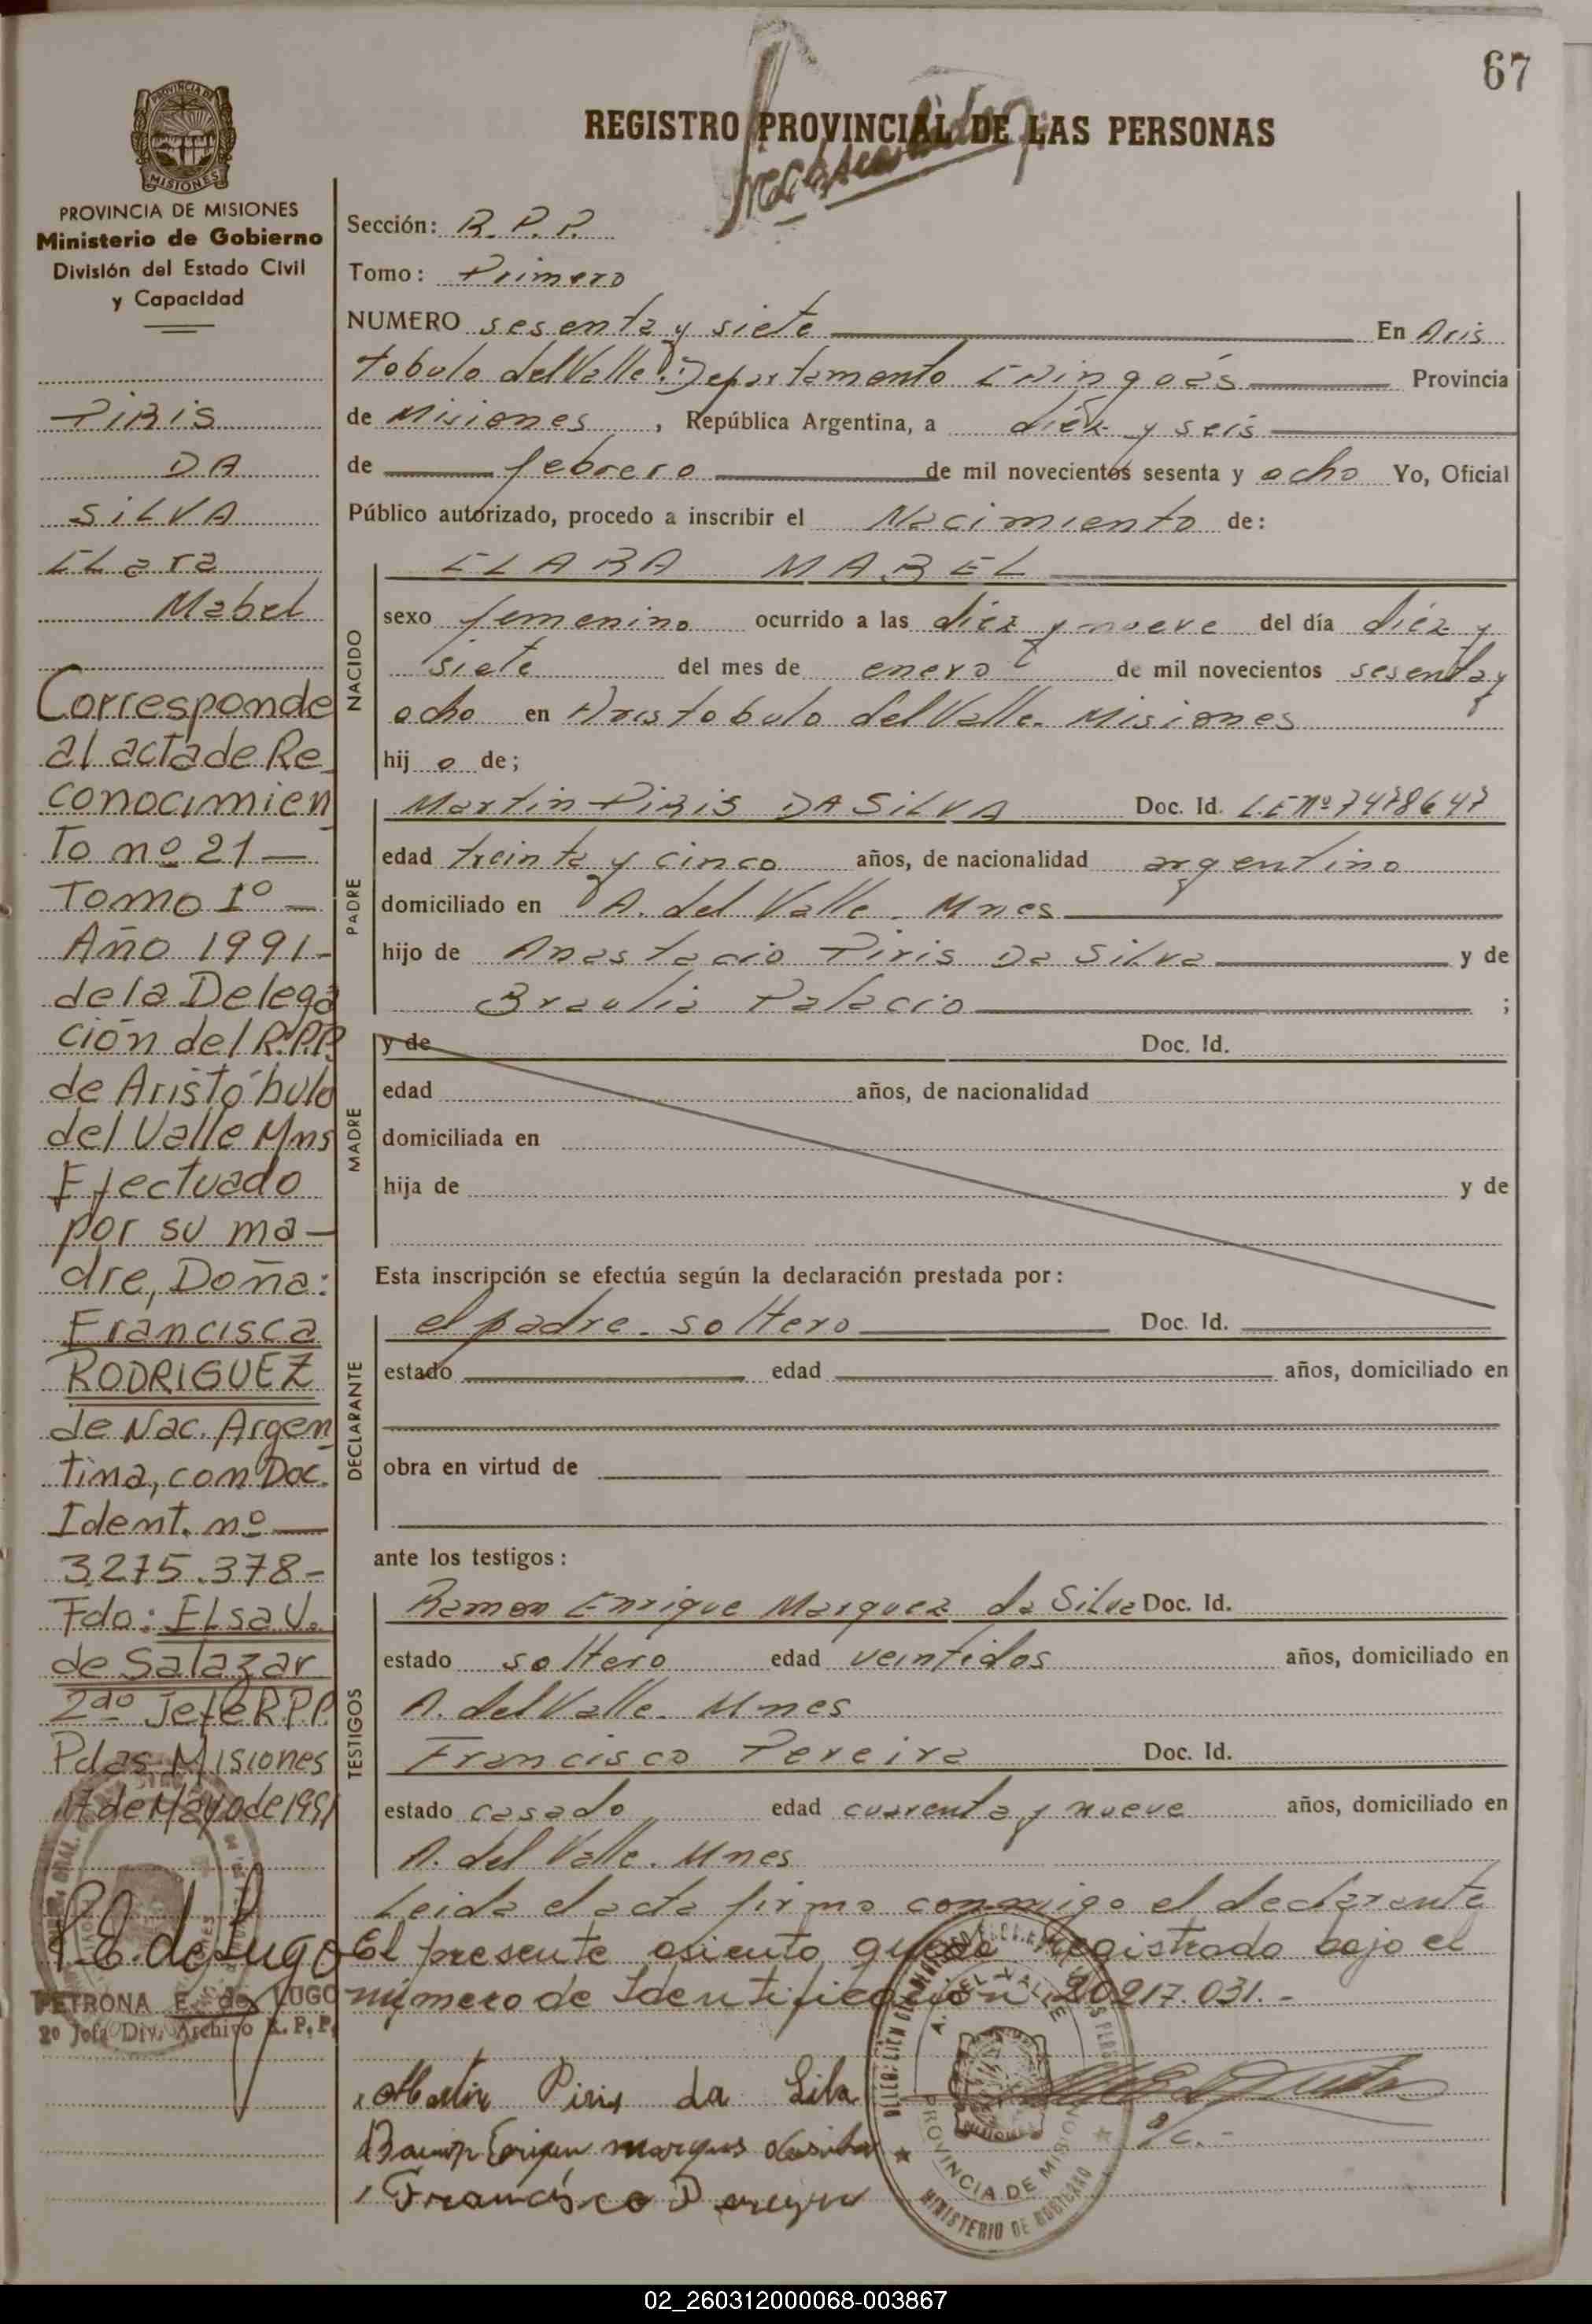 67
REGISTRO PROVINCIAL DE LAS PERSONAS
PROVINCIA DE MISIONES
Ministerio de Gobierno
División del Estado Civil
y Capacidad
PIRIS
DA
SILVA
CLara
Mabel
Corresponde
al acta de Re
conocimien
to nº 21 —
Tomo 1º —
Año 1991 -
de la Delega
ción del R.P.P.
de Aristóbulo
del Valle Mns
Efectuado
por su ma-
dre, Doña:
Francisca
RODRIGUEZ
de Nac. Argen
tina, con Doc.
Ident. nº —
3.275.378-
Fdo: ELsa V.
de Salazar
2do Jefe R.P.P.
Pdas Misiones
17 de Mayo de 1991
P.E. de Lugo
PETRONA E. de LUGO
2º Jefa Div. Archivo R.P.P.
Sección: R. P. P.
Tomo: Primero
NUMERO sesenta y siete En Aris
tobulo del Valle. Departamento Cainguás Provincia
de Misiones, República Argentina, a diéz y seis
de febrero de mil novecientos sesenta y ocho Yo, Oficial
Público autorizado, procedo a inscribir el Nacimiento de:
NACIDO
CLARA MABEL
sexo femenino ocurrido a las diéz y nueve del día diéz y
siete del mes de enero de mil novecientos sesenta y
ocho en Aristobulo del Valle. Misiones
hij o de;
PADRE
Martin PIRIS DA SILVA Doc. Id. L.E Nº 7478647
edad treinta y cinco años, de nacionalidad argentino
domiciliado en A. del Valle. Mnes
hijo de Anastacio Piris Da Silva y de
Braulia Palacio ;
MADRE
y de Doc. Id.
edad años, de nacionalidad
domiciliada en
hija de y de
Esta inscripción se efectúa según la declaración prestada por:
DECLARANTE
el padre. soltero Doc. Id.
estado edad años, domiciliado en
obra en virtud de
ante los testigos:
TESTIGOS
Ramon Enrique Marquez da Silva Doc. Id.
estado soltero edad veintidos años, domiciliado en
A. del Valle. Mnes
Francisco Pereira Doc. Id.
estado casado edad cuarenta y nueve años, domiciliado en
A. del Valle. Mnes
Leida el acta firma conmigo el declarante
El presente asiento queda registrado bajo el
número de Identificación 20217.031.-
Martin Piris da Sila
Francisco Pereyra
A. DEL VALLE
PROVINCIA DE MISIONES
MINISTERIO DE GOBIERNO
02_260312000068-003867